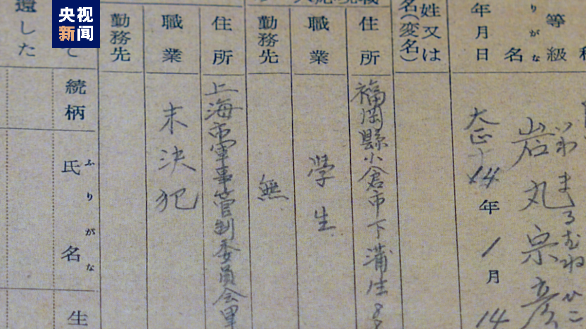 央视
新闻
等級
りがな
名
いわまるむねひこ
岩丸宗彦
年月日
大正14年1月14
姓又は
名(変名)
住所
福岡縣小倉市下蒲生8
職業
學生
勤務先
無
住所
上海市軍事管制委員会里
職業
未決犯
勤務先
て
続柄
ふりがな
氏名
生
還した